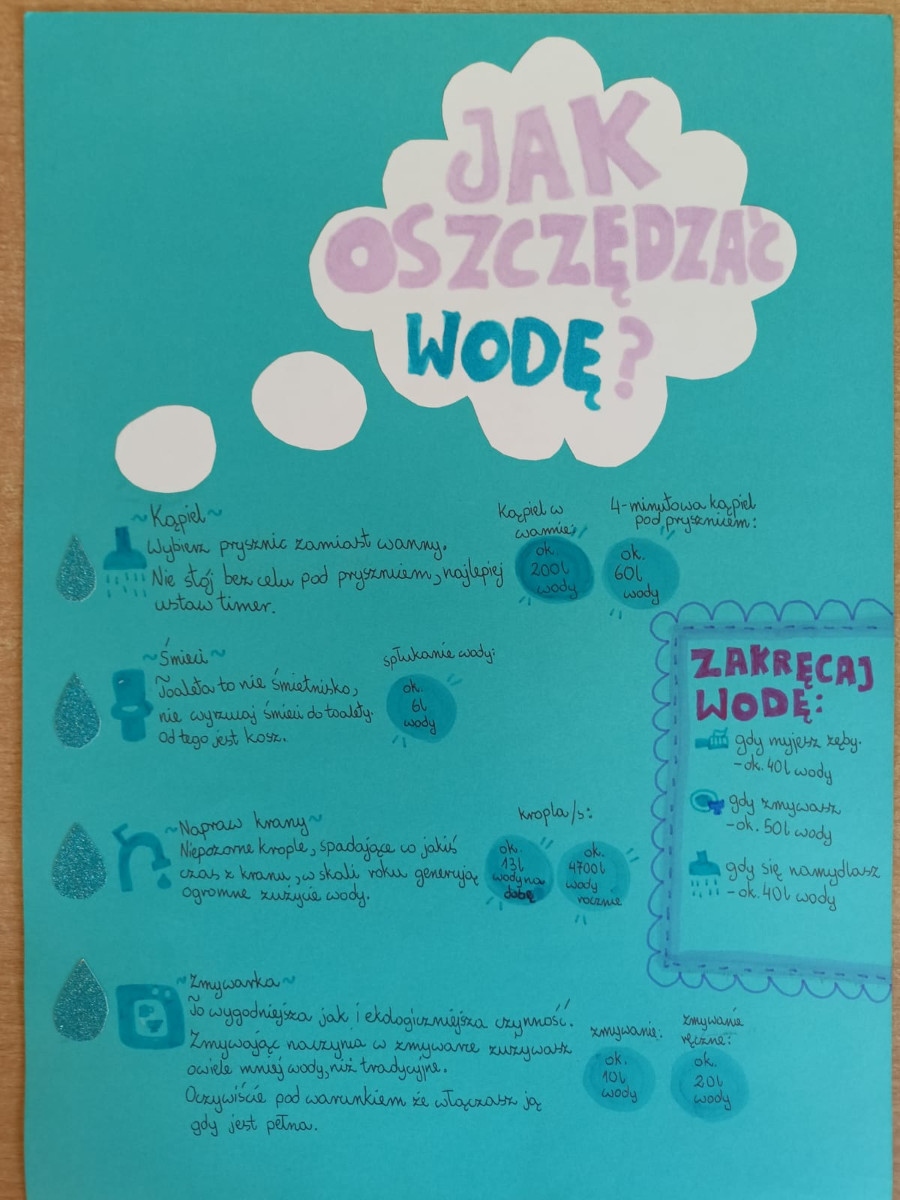 JAK
OSZCZĘDZAĆ
WODĘ?
~Kąpiel~
Wybierz prysznic zamiast wanny.
Nie stój bez celu pod prysznicem, najlepiej
ustaw timer.
Kąpiel w
wannie:
ok.
200l
wody
4-minutowa kąpiel
pod prysznicem:
ok.
60l
wody
~Śmieci~
Toaleta to nie śmietnisko,
nie wyrzucaj śmieci do toalety.
Od tego jest kosz.
spłukanie wody:
ok.
6l
wody
~Napraw krany~
Niepozorne krople, spadające co jakiś
czas z kranu, w skali roku generują
ogromne zużycie wody.
kropla/s:
ok.
13l
wody na
dobę
ok.
4700l
wody
rocznie
~Zmywarka~
To wygodniejsza jak i ekologiczniejsza czynność.
Zmywając naczynia w zmywarce zużywasz
o wiele mniej wody, niż tradycyjne.
Oczywiście pod warunkiem że włączasz ją
gdy jest pełna.
zmywanie:
ok.
10l
wody
zmywanie
ręczne:
ok.
20l
wody
ZAKRĘCAJ
WODĘ:
gdy myjesz zęby.
-ok. 40l wody
gdy zmywasz
-ok. 50l wody
gdy się namydlasz
-ok. 40l wody